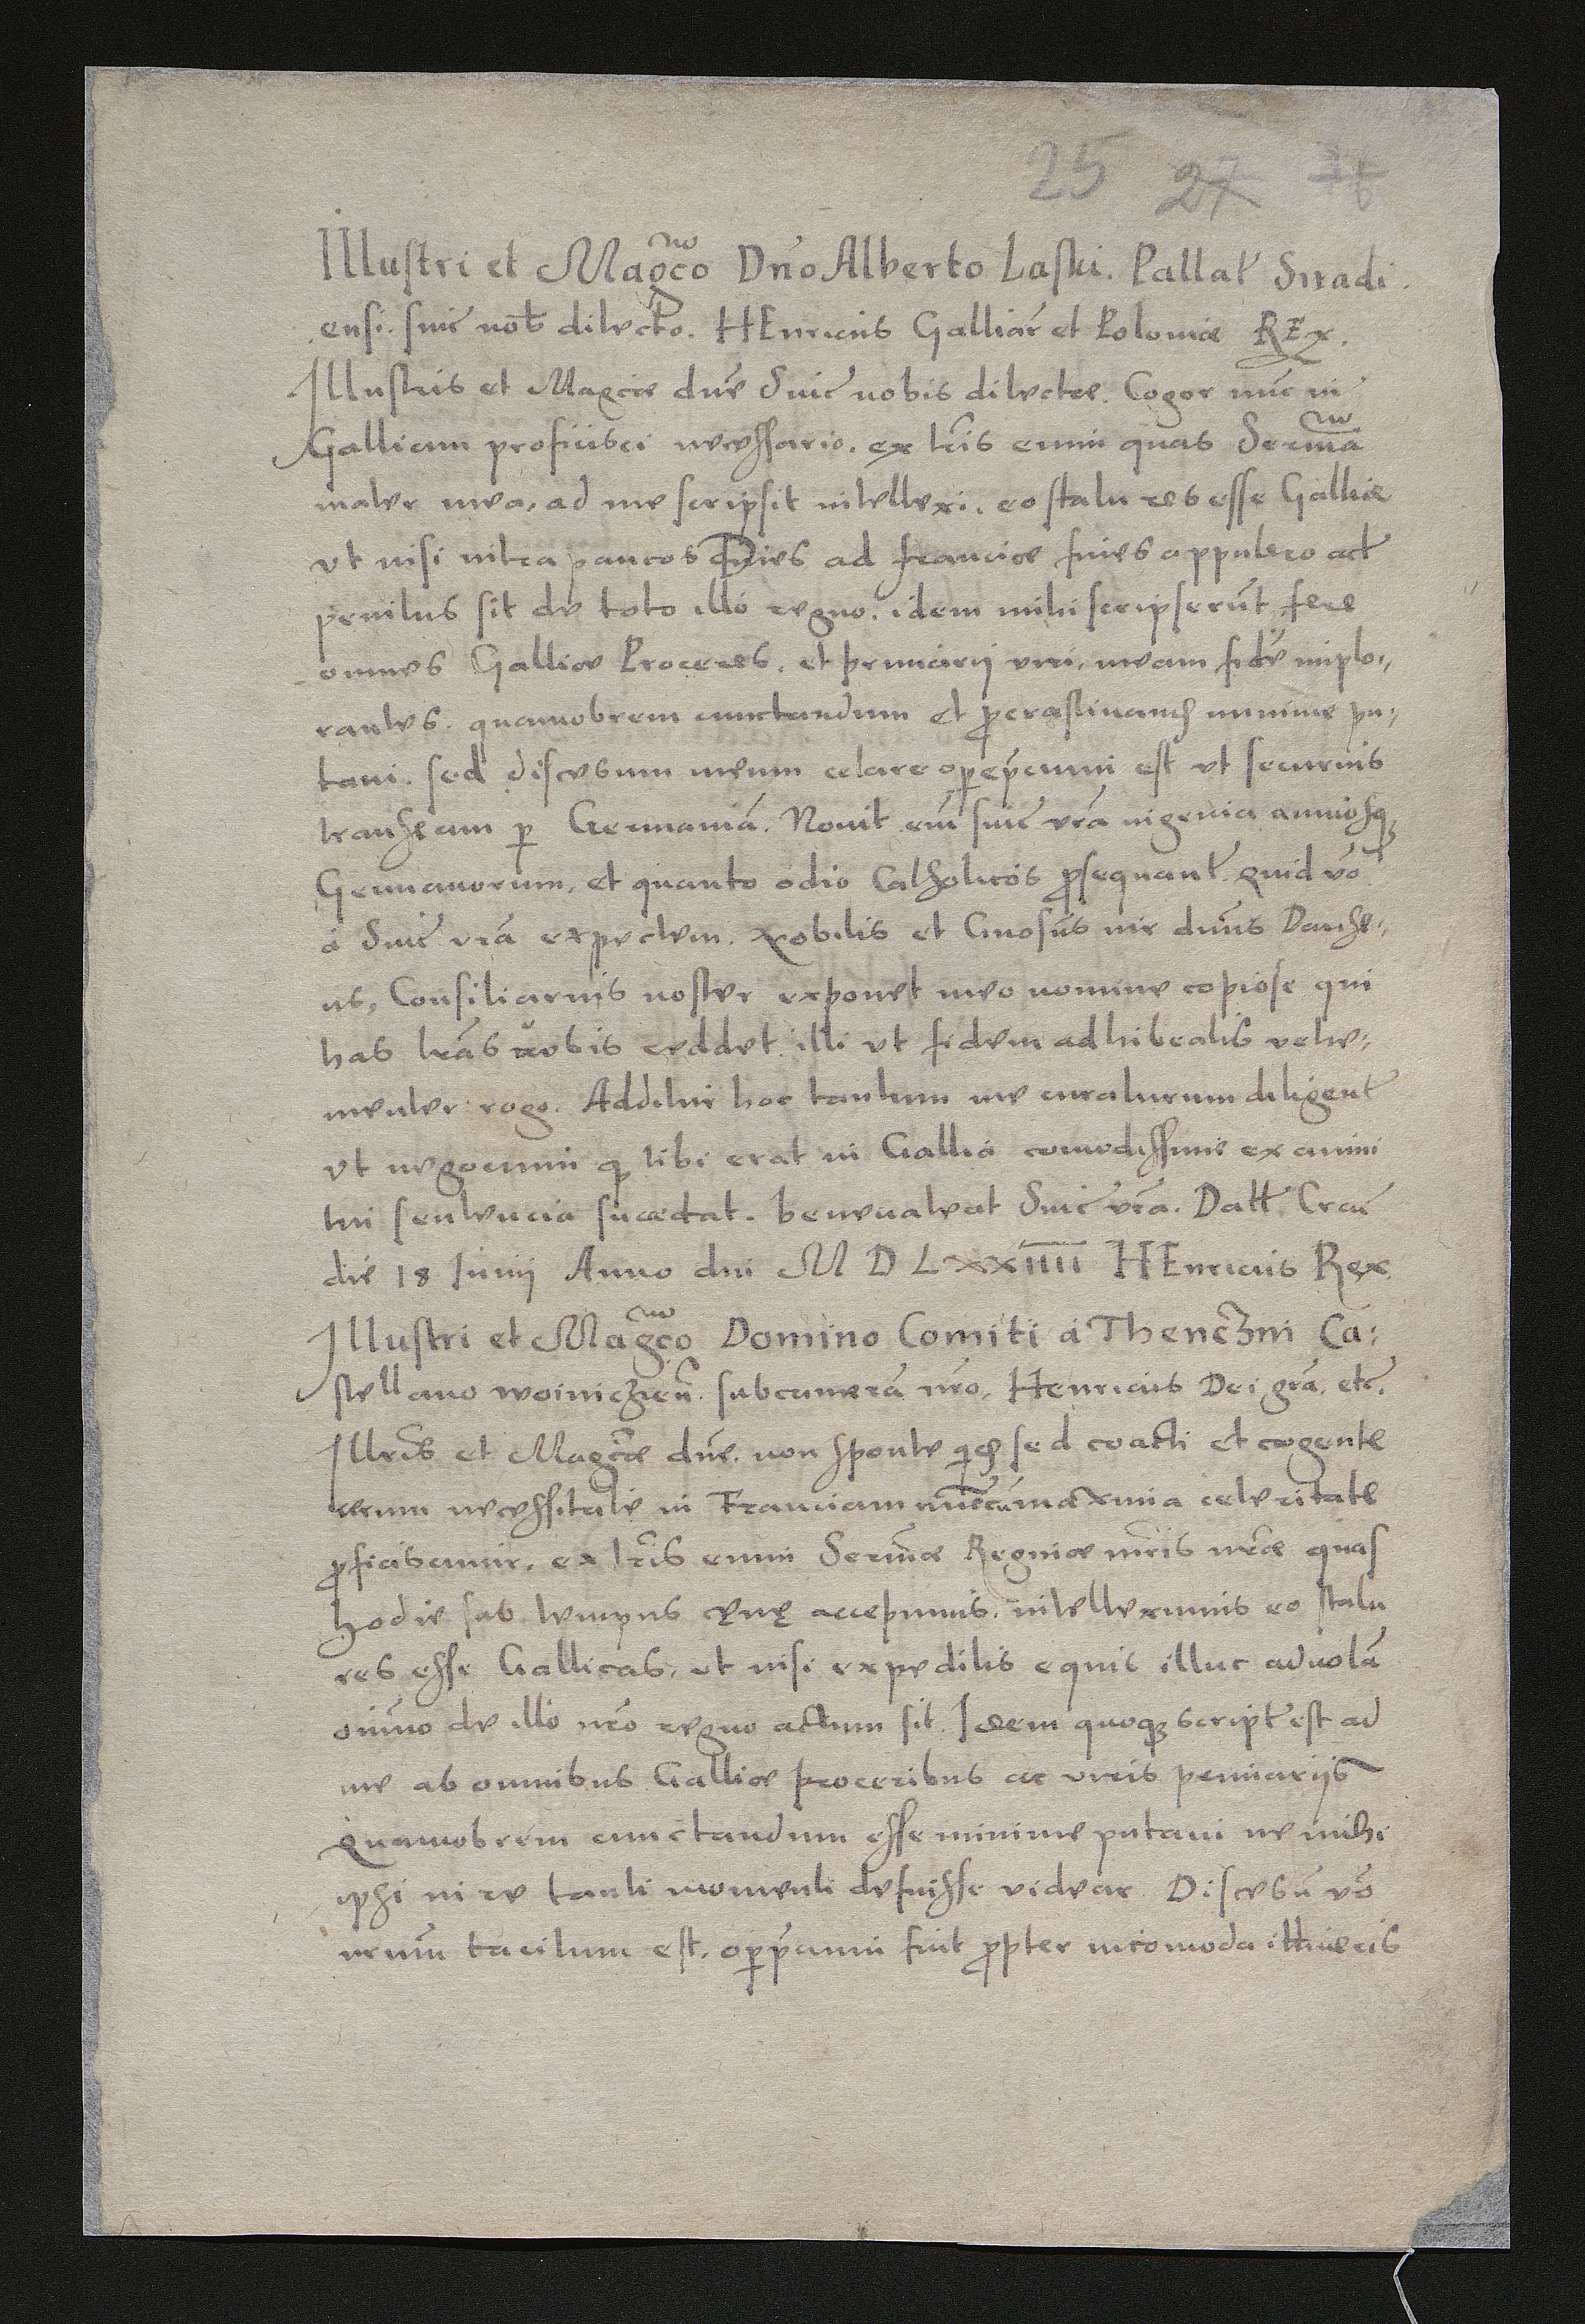 25 27
Illustri et Mag̃co Dno Alberto Laski. Pallat Siradi
ensi. sinc̃ nob̃ dilecto. HEnricus Galliar̃ et Poloniæ REx.
Illustris et Magc̃e dñe Sinc̃ nobis dilecte. Cogor nũc in
Galliam proficisci necessario. ex lr̃is enim quas Serm̃a
mater mea, ad me scripsit intellexi. eo statu res esse Galliæ
vt nisi intra paucos dies ad Franciæ fines appulero act̃
penitus sit de toto illo regno. idem mihi scripserũt fere
omnes Galliæ Proceres. et primarij viri, meam fidẽ implo,,
rantes. quamobrem cunctandum et p̃crastinand̃ minime pu,
taui. sed discesum meum celare op̃ep̃cium est vt securius
transeam p̱ Germaniã. Nouit em̃ sinc̃ vrã ingenia animosq̃
Germanorum, et quanto odio Catholicos p̃sequant̃. quid võ
á Sinc̃ vrã expectem. Nobilis et Gnosus vir dnũs Danse,,
us, Consiliarius noster exponet meo nomine copiose qui
has lrãs vobis reddet. illi vt fidem adhibeatis vehe,
menter rogo. Addetur hoc tantum me curaturum diligent̃
vt negocium q̃ tibi erat in Gallia comodissime ex animi
tui sentencia succedat. beneualeat Sinc̃ vrã. Datt̃ Crac̃
die 18 Junij Anno dni M D LXXIIII HEnricus Rex.
Illustri et Mag̃co Domino Comiti á Thenczni Ca,
stellano woiniczen̄. subcamerã nrõ. Henricus Dei grã. etc̃.
Illr̃is et Magc̃e dñe. non sponte q̃d̃ sed coacti et cogente
rerum necessitate in Franciam nũc cũ maxima celeritate
p̃ficiscimur. ex lr̃is enim Serm̃æ Reginæ mr̃is nrẽ quas
hodie sub tempus cęnę accepimus. intelleximus eo statu
res esse Gallicas, vt nisi expeditis equis illuc aduolã
oim̃no de illo nrõ regno actum sit. Idem quoq̃ script̃ est ad
me ab omnibus Galliæ proceribus ac viris primarijs
Quamobrem cunctandum esse minime putaui ne mihi
ipsi in re tanti momenti defuisse videar. Discesũ võ
nrum̃ tacitum est. op̃p̃cium fuit p̃pter incomoda itineris